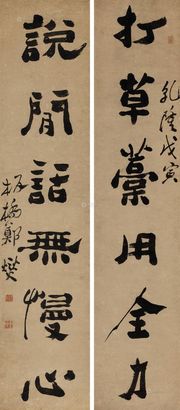 打草藁用全力
乾隆戊寅
說閒話無慢心
板橋鄭燮